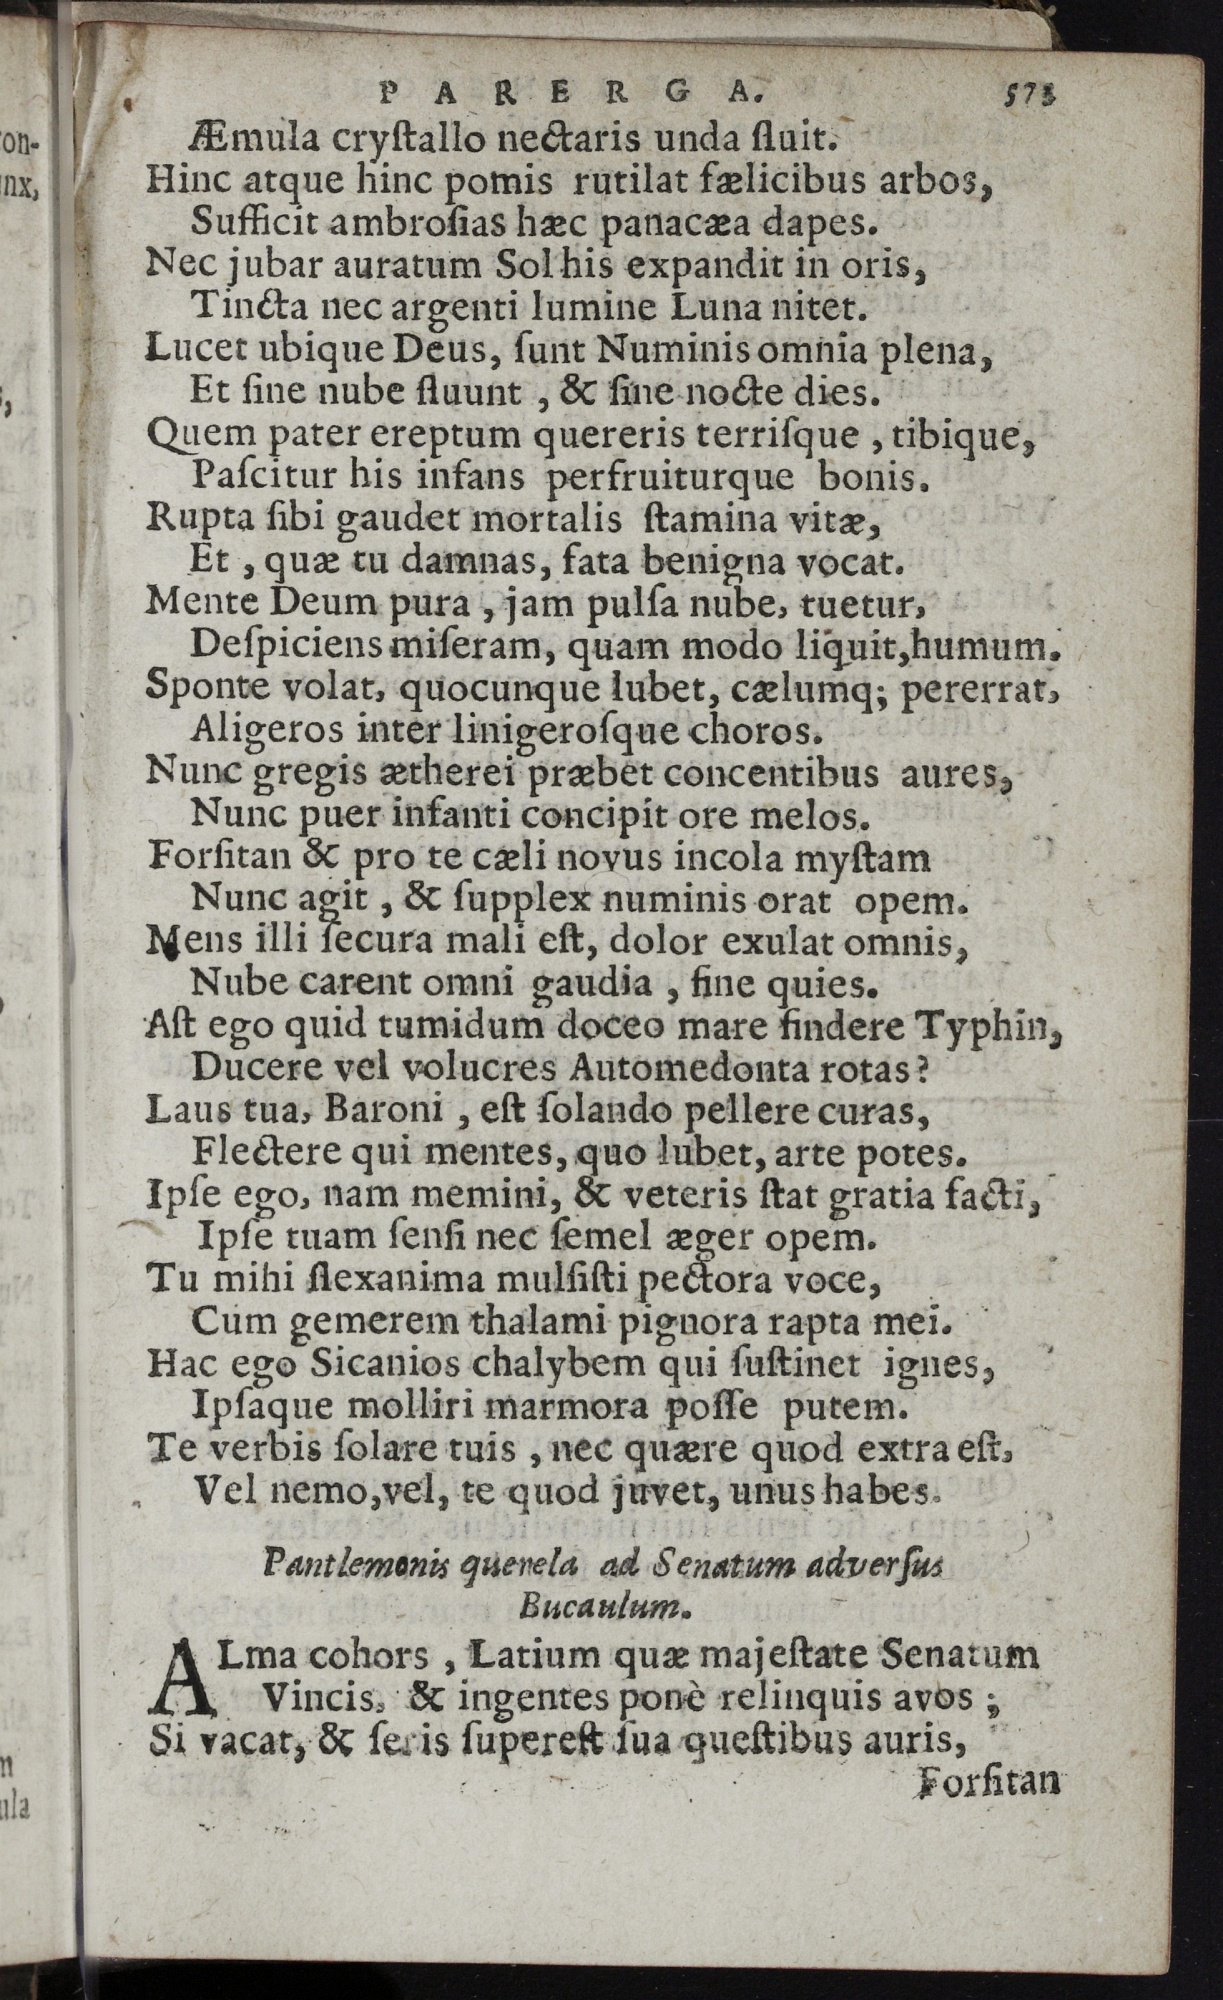 PARERGA. 573
Æmula cryſtallo nectaris unda fluit.
Hinc atque hinc pomis rutilat fælicibus arbos,
Sufficit ambroſias hæc panacæa dapes.
Nec jubar auratum Sol his expandit in oris,
Tincta nec argenti lumine Luna nitet.
Lucet ubique Deus, ſunt Numinis omnia plena,
Et ſine nube fluunt , & ſine nocte dies.
Quem pater ereptum quereris terriſque , tibique,
Paſcitur his infans perfruiturque bonis.
Rupta ſibi gaudet mortalis ſtamina vitæ,
Et , quæ tu damnas, fata benigna vocat.
Mente Deum pura , jam pulſa nube, tuetur,
Deſpiciens miſeram, quam modo liquit,humum.
Sponte volat, quocunque lubet, cælumq; pererrat,
Aligeros inter linigeroſque choros.
Nunc gregis ætherei præbet concentibus aures,
Nunc puer infanti concipit ore melos.
Forſitan & pro te cæli novus incola myſtam
Nunc agit , & ſupplex numinis orat opem.
Mens illi ſecura mali eſt, dolor exulat omnis,
Nube carent omni gaudia , fine quies.
Aſt ego quid tumidum doceo mare findere Typhin,
Ducere vel volucres Automedonta rotas?
Laus tua, Baroni , eſt ſolando pellere curas,
Flectere qui mentes, quo lubet, arte potes.
Ipſe ego, nam memini, & veteris ſtat gratia facti,
Ipſe tuam ſenſi nec ſemel æger opem.
Tu mihi flexanima mulſiſti pectora voce,
Cum gemerem thalami pignora rapta mei.
Hac ego Sicanios chalybem qui ſuſtinet ignes,
Ipſaque molliri marmora poſſe putem.
Te verbis ſolare tuis , nec quære quod extra eſt,
Vel nemo,vel, te quod juvet, unus habes.
Pantlemonis querela ad Senatum adverſus
Bucaulum.
ALma cohors , Latium quæ majeſtate Senatum
Vincis, & ingentes ponè relinquis avos ;
Si vacat, & ſeris ſupereſt ſua queſtibus auris,
Forſitan